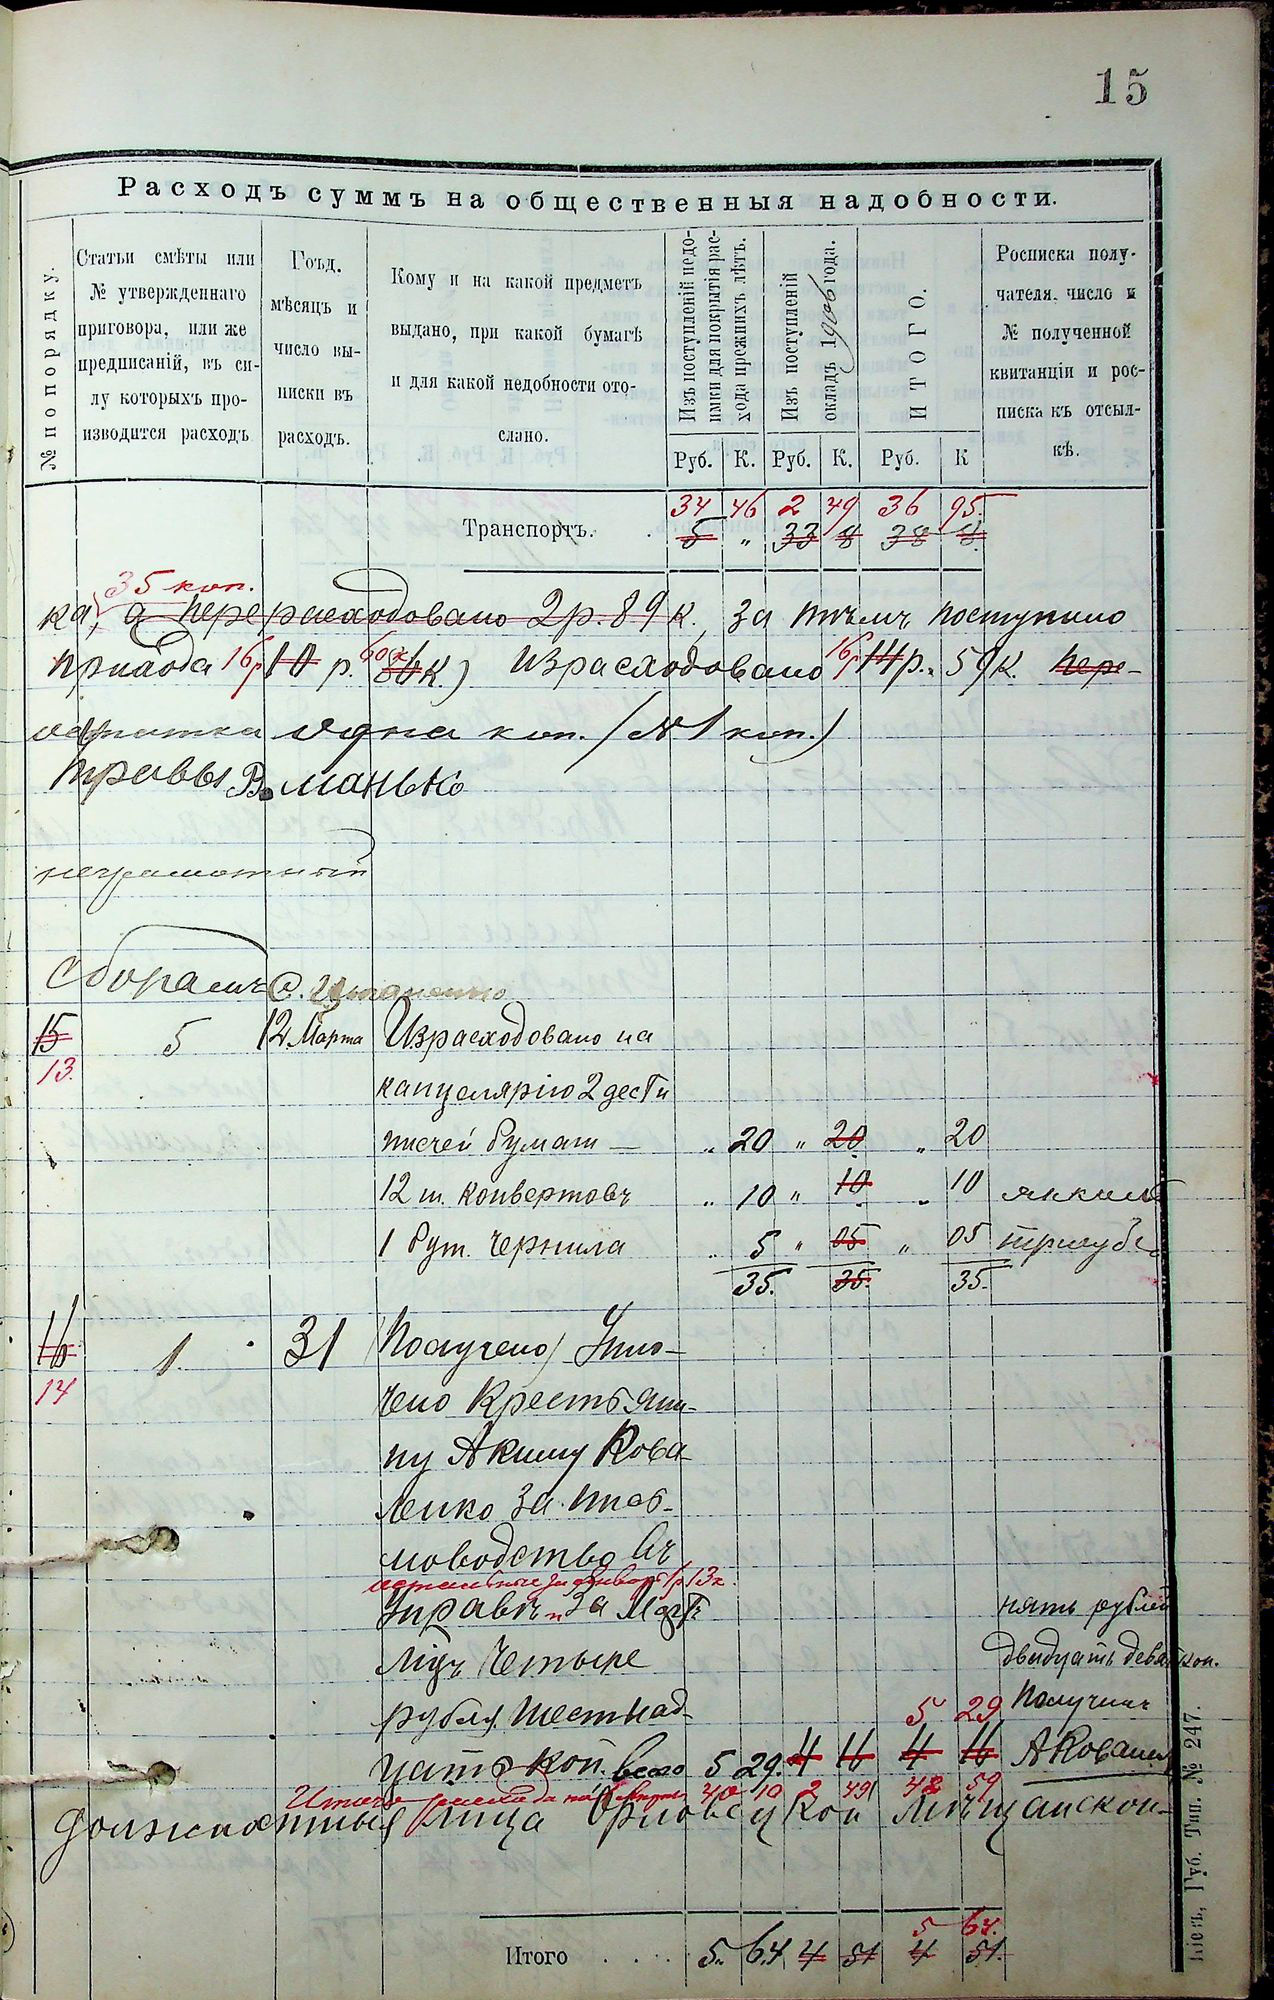 15
Расходъ суммъ на общественныя надобности.
№ по порядку.
Статьи смѣты или № утвержденнаго приговора, или же предписаній, въ силу которыхъ производится расходъ
Гоъд. мѣсяцъ и число выписки въ расходъ.
Кому и на какой предметъ выдано, при какой бумагѣ и для какой недобности отослано.
Изъ поступленій недоимки для покрытія расхода прежнихъ лѣтъ.
Изъ поступленій окладъ 1906 года.
ИТОГО.
Росписка получателя, число и № полученной квитанціи и росписка къ отсылкѣ.
Руб. К. Руб. К. Руб. К
34 46 2 49 36 95.
Транспортъ. . 5 „ 33 8 38 8.
35 коп.
ка, а перерасходовано 2 р. 89 к., за тѣмъ поступило
прихода 16 р 10 р. 60 к 86 к.) Израсходовано 16 р 14 р. 59 к. пере-
остатка одна коп. (№ 1 коп.)
Управы В. манько
неграмотный
Сборамъ С.
15 5 12 Марта Израсходовано на
13. канцелярію 2 дести
писчей бумаги — „ 20 „ 20 „ 20
12 ш. конвертовъ „ 10 „ 10 „ 10 якимъ
1 бут. чернила „ 5 „ 05 „ 05 тригубъ
35. 35. 35.
16 1. 31 (Получено) Упло-
14 чено Крестьяни-
ну Акиму Кова-
ленко за пись-
моводство въ
остальные за январь 1 р 13 к.
Управѣ и за Мартъ пять рублей
мцъ Четыре двадцать девять коп.
рубля шестнад- 5 29 Получилъ
цать коп. всего 5 29. 4 16 4 16 А Ковален
Итого 40 10 2 49 42 59
должностныя лица Орловецкой Мѣщанской
5 64.
Итого . . . . 5. 64 4 51 4 51.
Кіевъ, Губ. Тип. № 247.